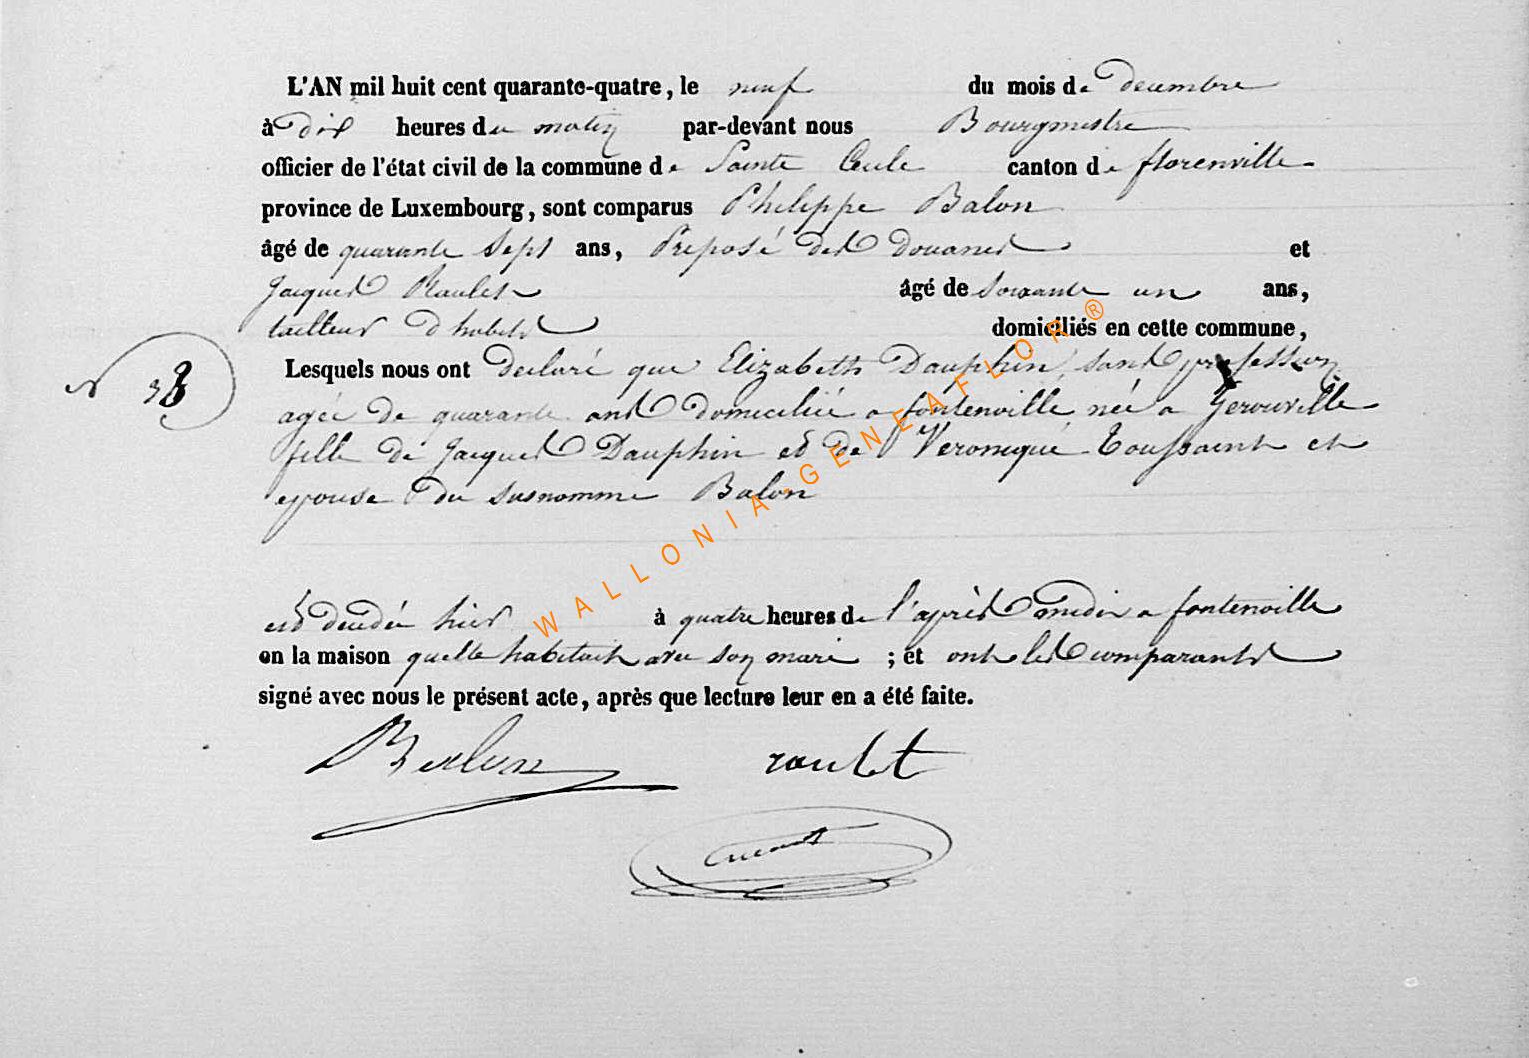 L'AN mil huit cent quarante-quatre, le neuf du mois de decembre
à dix heures du matin par-devant nous Bourgmestre
officier de l'état civil de la commune de Sainte Cecile canton de florenville
province de Luxembourg, sont comparus Philippe Balon
âgé de quarante sept ans, Préposé des Douanes et
Jacques Raulet âgé de soixante un ans,
tailleur d'habits domiciliés en cette commune,
Lesquels nous ont declaré que Elizabeth Dauphin, sans profession
N 38
agée de quarante ans domiciliée a fontenoille née a Gerouville
fille de Jacques Dauphin et de Veronique Toussaint et
epouse du susnommé Balon
est decedée hier à quatre heures de l'après midi a fontenoille
en la maison quelle habitait avec son mari ; et ont les comparants
signé avec nous le présent acte, après que lecture leur en a été faite.
Balon raulet
WALLONIA-GENEAFLOR®